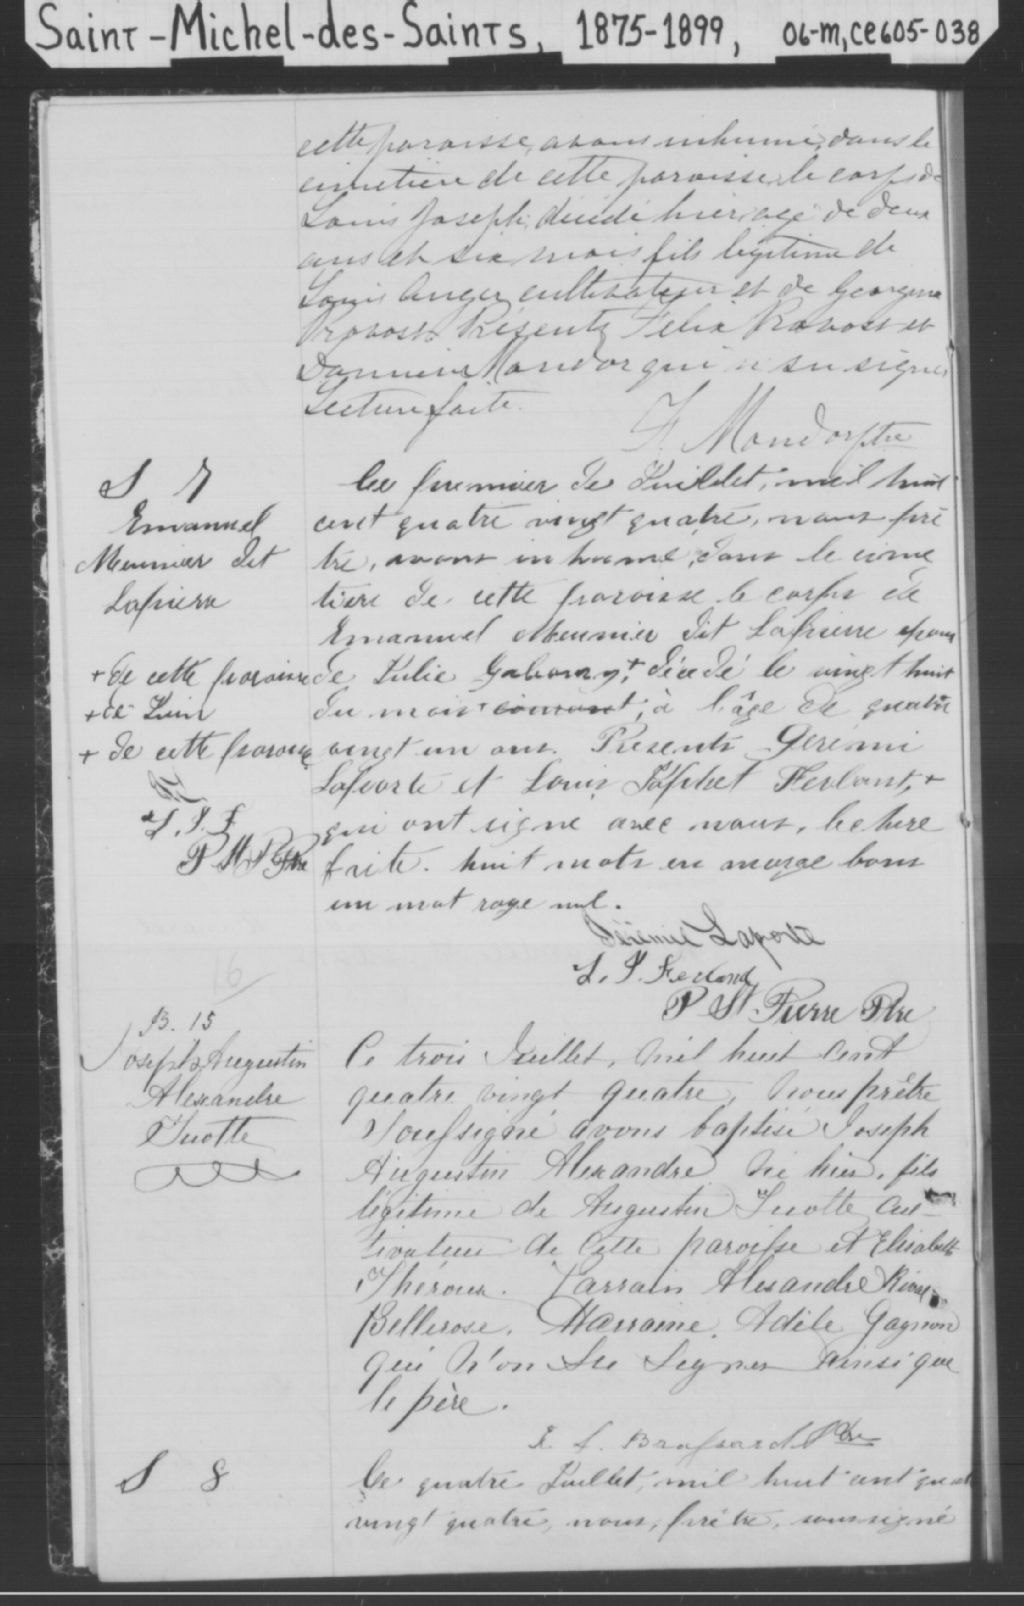 Saint-Michel-des-Saints, 1875-1899, 06-M,CE605-038
cette paroisse, avons inhumé, dans le
cimetière de cette paroisse, le corps de
Louis Joseph, décédé hier, agé de deux
ans et six mois fils légitime de
Louis Anger, cultivateur et de Georgina
Provost. Présents Félix Provost et
Mandor qui n su signer
Lecture faite.
F. Mandor ptre
S 7
Emanuel
Meunier dit
Lapierre
+ de cette paroisse
+ de Juin
+ de cette paroisse
L. J. F
P St P Ptre
Ce premier de Juillet, mil huit
cent quatre vingt quatre, nous prê
tre, avons inhumé, dans le cime
tière de cette paroisse le corps de
Emanuel Meunier dit Lapierre époux
de Julie Gaboury,+ décédé le vingt huit
du mois + courant, à l'âge de quatre
vingt un ans. Présents Gérémi
Laporte et Louis Japhet Ferland, +
qui ont signé avec nous, lecture
faite. huit mots en marge bons
un mot rayé nul.
Jérémie Laporte
L. J. Ferland
P St Pierre Ptre
16
B. 15
Joseph Augustin
Alexandre
Turotte
Ce trois Juillet, mil huit cent
quatre vingt quatre, Nous prêtre
Soussigné avons baptisé Joseph
Augustin Alexandre né hier, fils
légitime de Augustin Turotte cul-
tivateur de cette paroisse et Elisabeth
Théroux. Parrain Alexandre
Bellerose. Marraine, Adèle Gagnon
qui n'on su signer ainsi que
le père.
Brassard Ptre
S 8
Ce quatre Juillet, mil huit cent quat
vingt quatre, nous, prêtre, soussigné